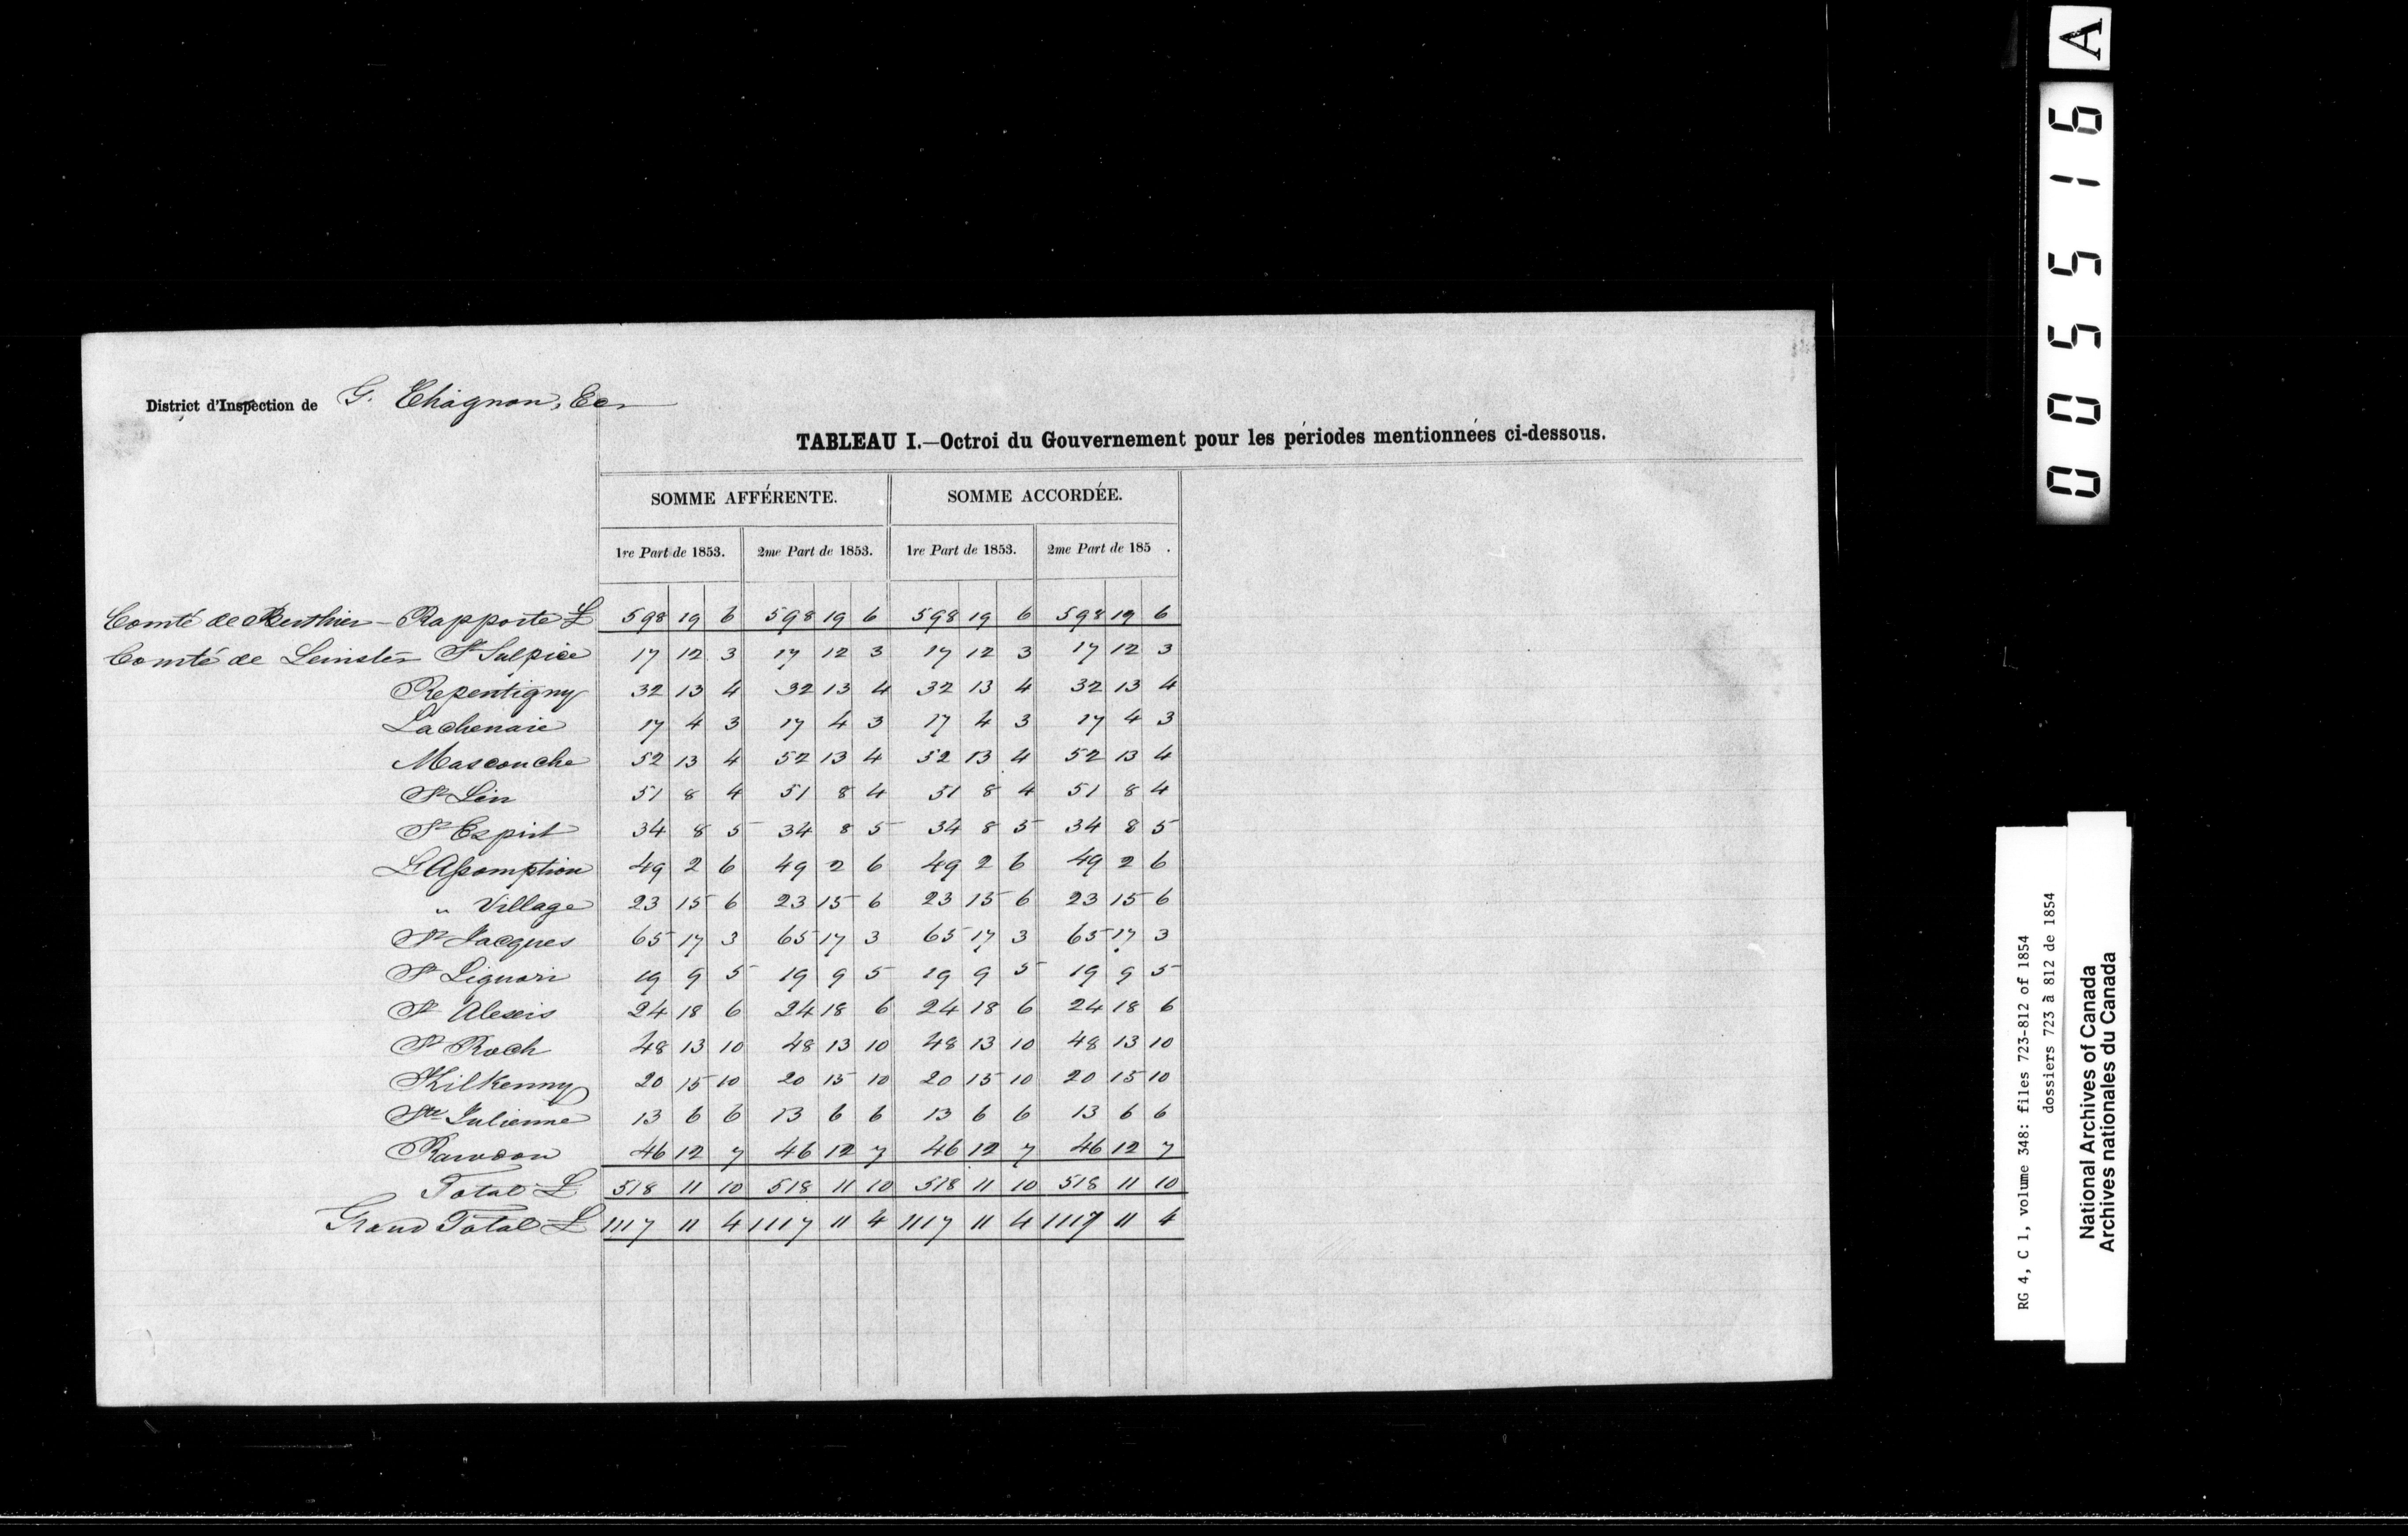 District d'Inspection de G. Chagnon, Ecr
TABLEAU I.—Octroi du Gouvernement pour les périodes mentionnées ci-dessous.
SOMME AFFÉRENTE. SOMME ACCORDÉE.
1re Part de 1853. 2me Part de 1853. 1re Part de 1853. 2me Part de 185 .
Comté de Berthier - Rapporte £ 598 19 6 598 19 6 598 19 6 598 19 6
Comté de Leinster St Sulpice 17 12 3 17 12 3 17 12 3 17 12 3
Repentigny 32 13 4 32 13 4 32 13 4 32 13 4
Lachenaie 17 4 3 17 4 3 17 4 3 17 4 3
Mascouche 52 13 4 52 13 4 52 13 4 52 13 4
St Lin 51 8 4 51 8 4 51 8 4 51 8 4
St Esprit 34 8 5 34 8 5 34 8 5 34 8 5
L'Assomption 49 2 6 49 2 6 49 2 6 49 2 6
" Village 23 15 6 23 15 6 23 15 6 23 15 6
St Jacques 65 17 3 65 17 3 65 17 3 65 17 3
St Liguori 19 9 5 19 9 5 19 9 5 19 9 5
St Alexis 24 18 6 24 18 6 24 18 6 24 18 6
St Roch 48 13 10 48 13 10 48 13 10 48 13 10
Kilkenny 20 15 10 20 15 10 20 15 10 20 15 10
Ste Julienne 13 6 6 13 6 6 13 6 6 13 6 6
Rawdon 46 12 7 46 12 7 46 12 7 46 12 7
Total £ 518 11 10 518 11 10 518 11 10 518 11 10
Grand Total £ 1117 11 4 1117 11 4 1117 11 4 1117 11 4
005516 A
RG 4, C 1, volume 348: files 723-812 of 1854
dossiers 723 à 812 de 1854
National Archives of Canada
Archives nationales du Canada